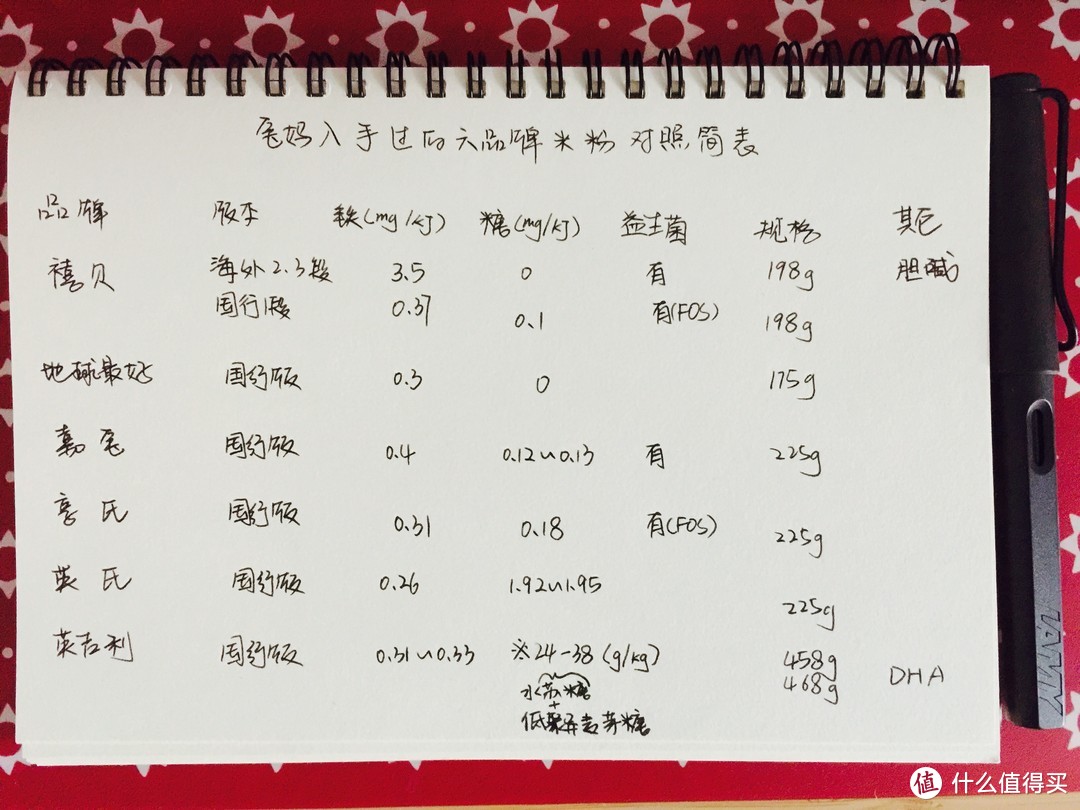 宝妈入手过的六品牌米粉对照简表
品牌 版本 铁(mg/KJ) 糖(mg/KJ) 益生菌 规格 其它
禧贝 海外2.3段 3.5 0 有 198g 胆碱
国行1段 0.37 0.1 有(FOS) 198g
地球最好 国行版 0.3 0 175g
嘉宝 国行版 0.4 0.12~0.13 有 225g
亨氏 国行版 0.31 0.18 有(FOS) 225g
英氏 国行版 0.26 1.92~1.95 225g
英吉利 国行版 0.31~0.33 ※24-38(g/kg) 458g
468g DHA
水苏糖
+
低聚异麦芽糖
LAMY
值 什么值得买